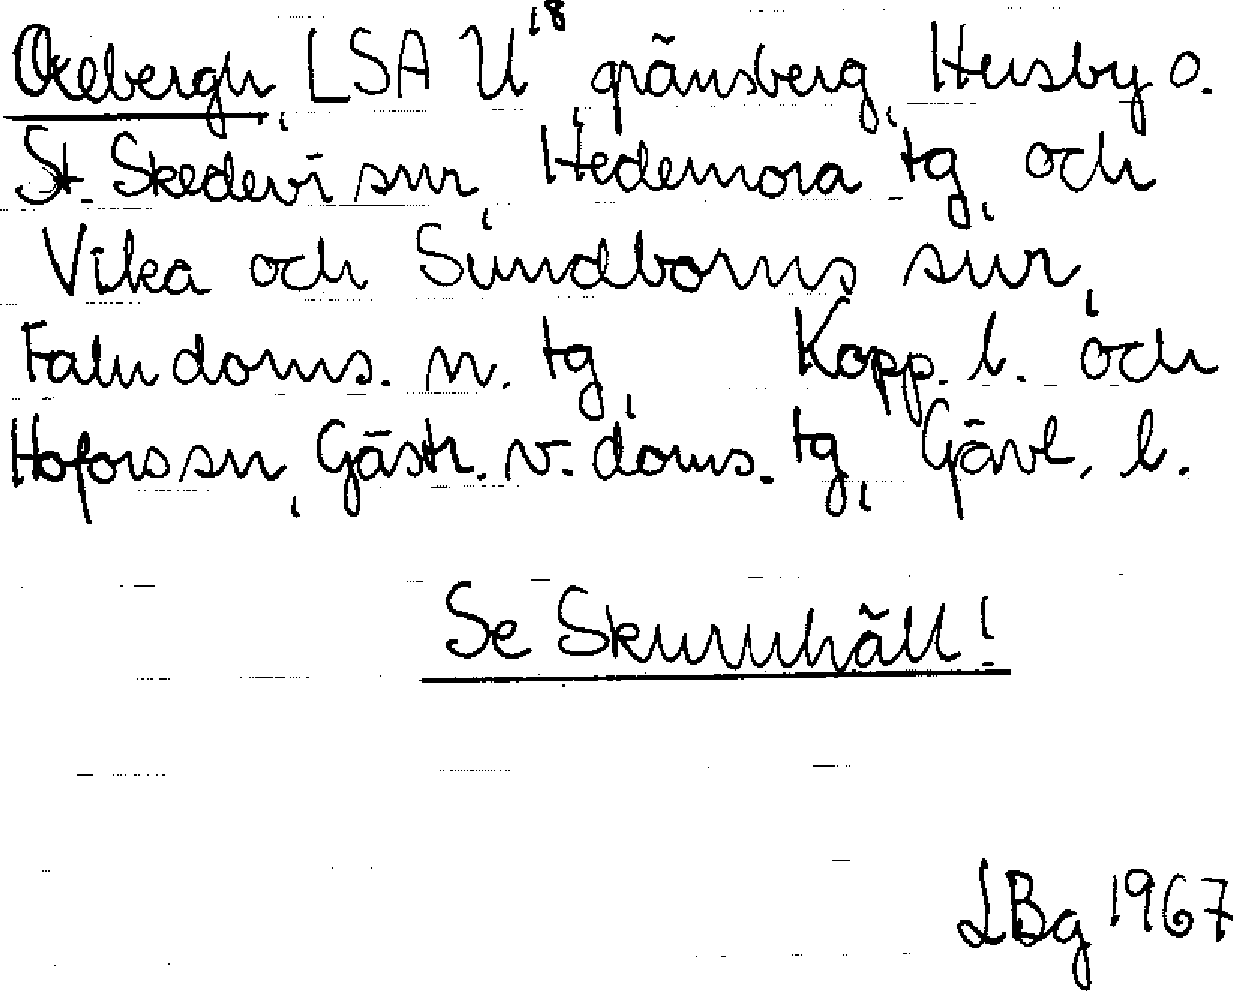 Oxebergh, LSA U¹⁸ gränsberg, Husby o.
St. Skedevi snr, Hedemora tg, och
Vika och Sundborns snr,
Falu doms. n. tg, Kopp. l. och
Hofors sn, Gästr. v. doms. tg, Gävl. l.
Se Skuruhäll!
LBg 1967